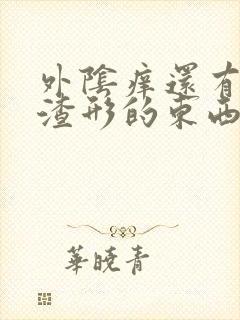 外陰痒還有
渣形的東西
華曉青